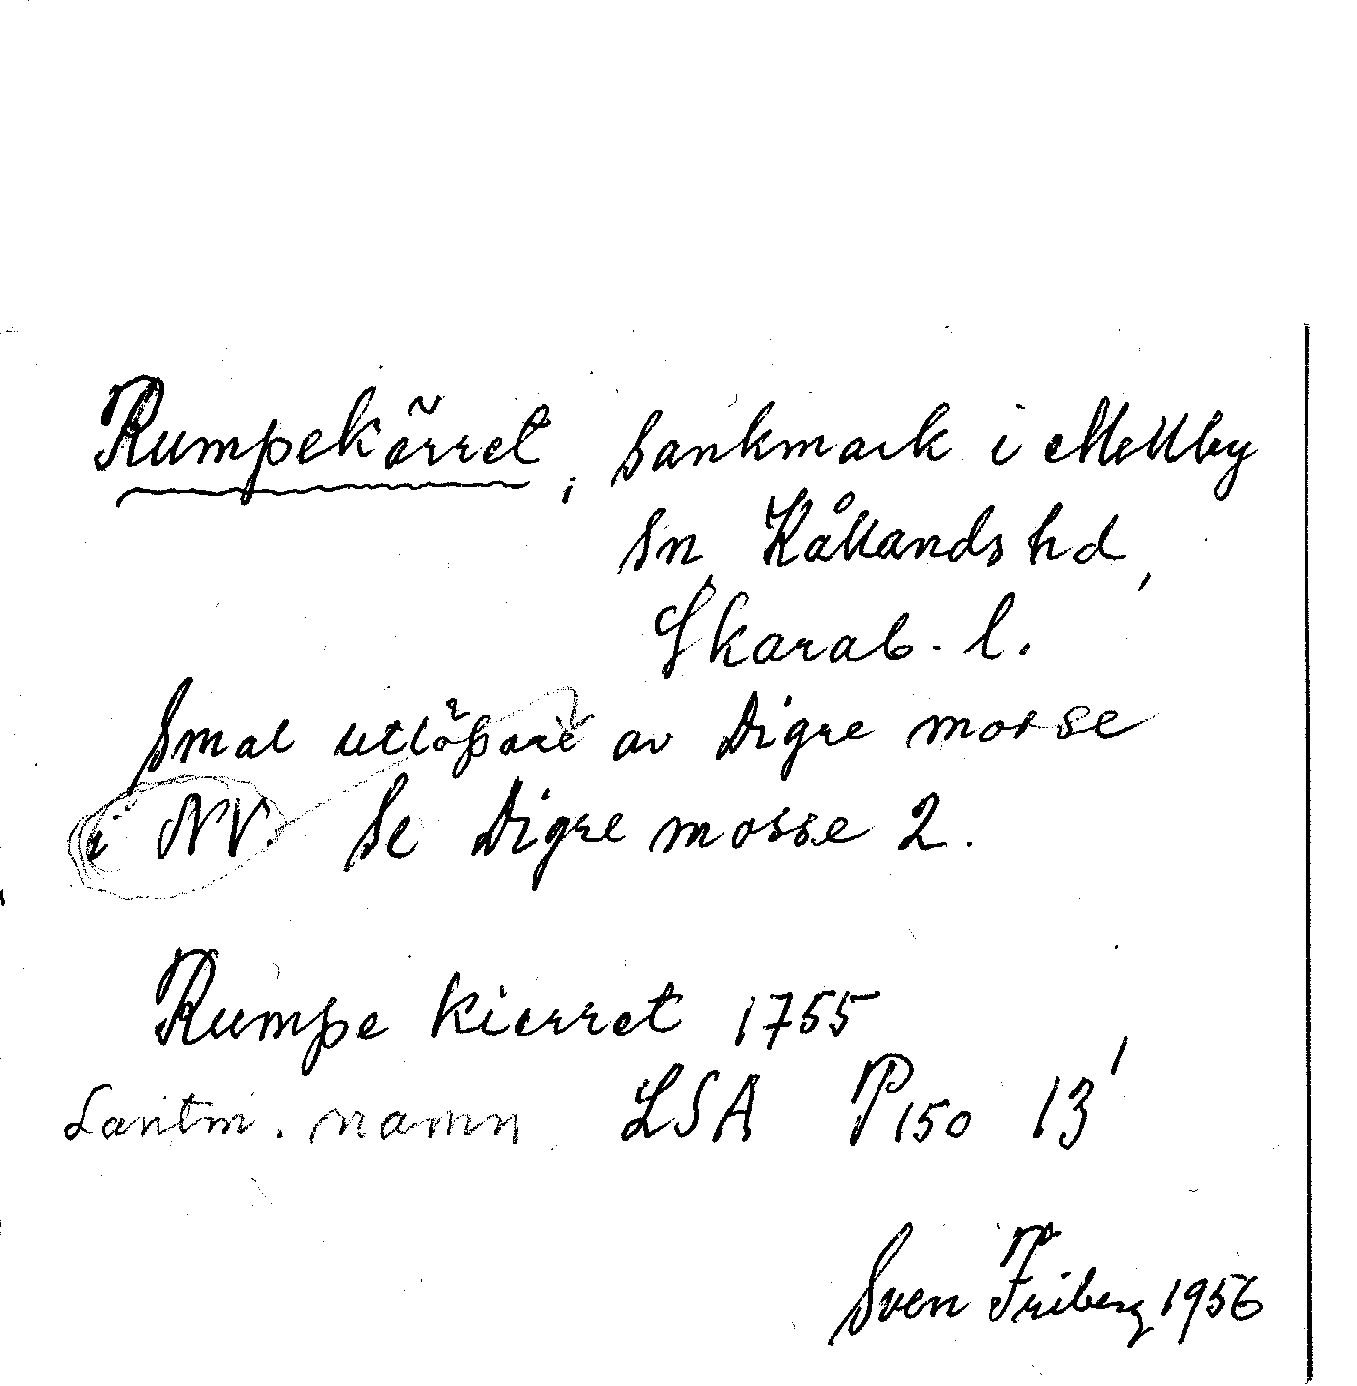 Rumpekärret, sankmark i Mellby
sn Kållands hd,
Skarab. l.
Smal utlöpare av Digre mosse
i NV Se Digre mosse 2.
Rumpe kierret 1755
Lantm. namn LSA P150 13'
Sven Friberg 1956